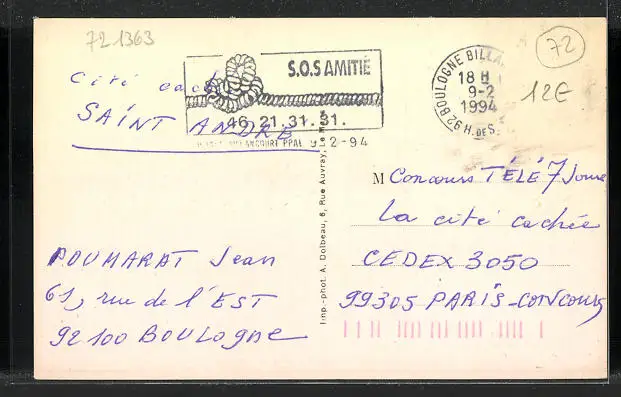 72 1363
72
12€
S.O.S AMITIÉ
46.21.31.31.
PPAL 9-2-94
BOULOGNE BILLA
18 H
9-2
1994
92 H. DES.
Cité cach
SAINT ANDRE
Imp.-phot. A. Dolbeau, 6, Rue Auvray, Le
M Concours TÉLÉ 7 Jours
La cité cachée
CEDEX 3050
99305 PARIS-CONCOURS
POUMARAT Jean
61, rue de l'EST
92100 BOULOGNE